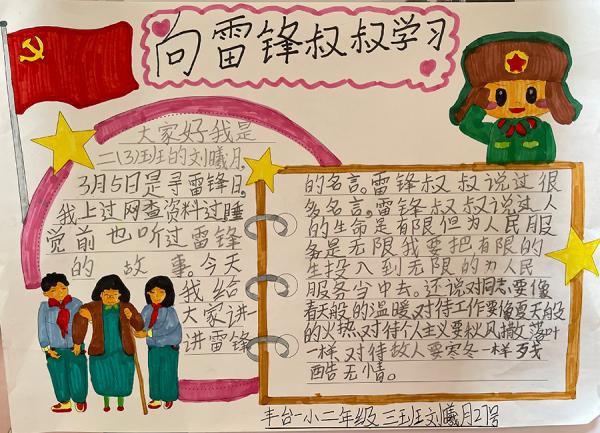 向雷锋叔叔学习
大家好我是
二(3)班的刘曦月
3月5日是寻雷锋日,
我上过网查资料过睡
觉前也听过雷锋
的故事。今天
我给
大家讲
讲雷锋
的名言。雷锋叔叔说过很
多名言。雷锋叔叔说过人
的生命是有限但为人民服
务是无限我要把有限的
生投入到无限的为人民
服务当中去。还说对同志要像
春天般的温暖、对待工作要像夏天般
的火热、对待个人主义要秋风撒落叶
一样、对待敌人要寒冬一样残
酷无情。
丰台一小二年级三班刘曦月27号